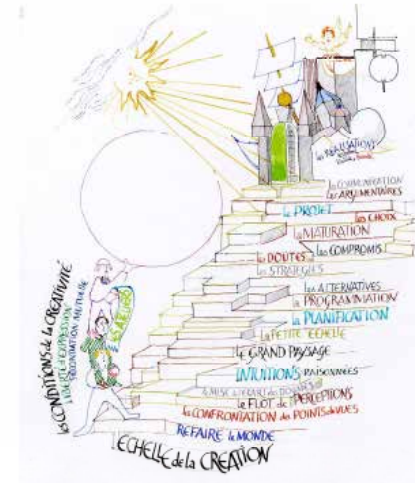 les RÉALISATIONS
la COMMUNICATION
les ARGUMENTAIRES
le PROJET
les CHOIX
la MATURATION
les DOUTES
les COMPROMIS
les STRATEGIES
les ALTERNATIVES
la PROGRAMMATION
la PLANIFICATION
la PETITE ECHELLE
le GRAND PAYSAGE
INTUITIONS RAISONNÉES
la MISE à l'ECART des DOGMES
le FLOT de PERCEPTIONS
la CONFRONTATION des POINTS de VUES
REFAIRE le MONDE
L'ECHELLE de la CREATION
les CONDITIONS de la CREATIVITÉ
LIBERTÉ d'EXPRESSION